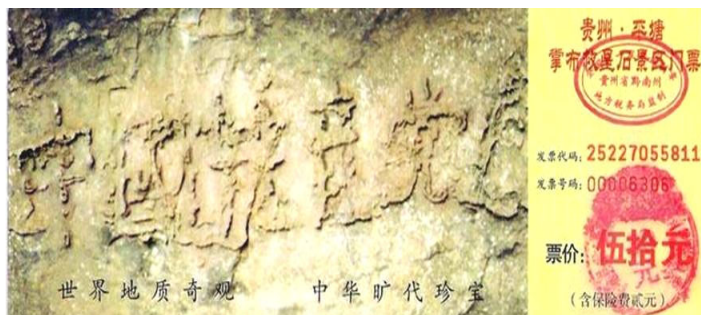 中國共産党亡
世界地质奇观 中华旷代珍宝
贵州·平塘
掌布救星石景区门票
贵州省黔南州
地方税务局监制
发票代码：25227055811
发票号码：00006306
票价：伍拾元
（含保险费贰元）